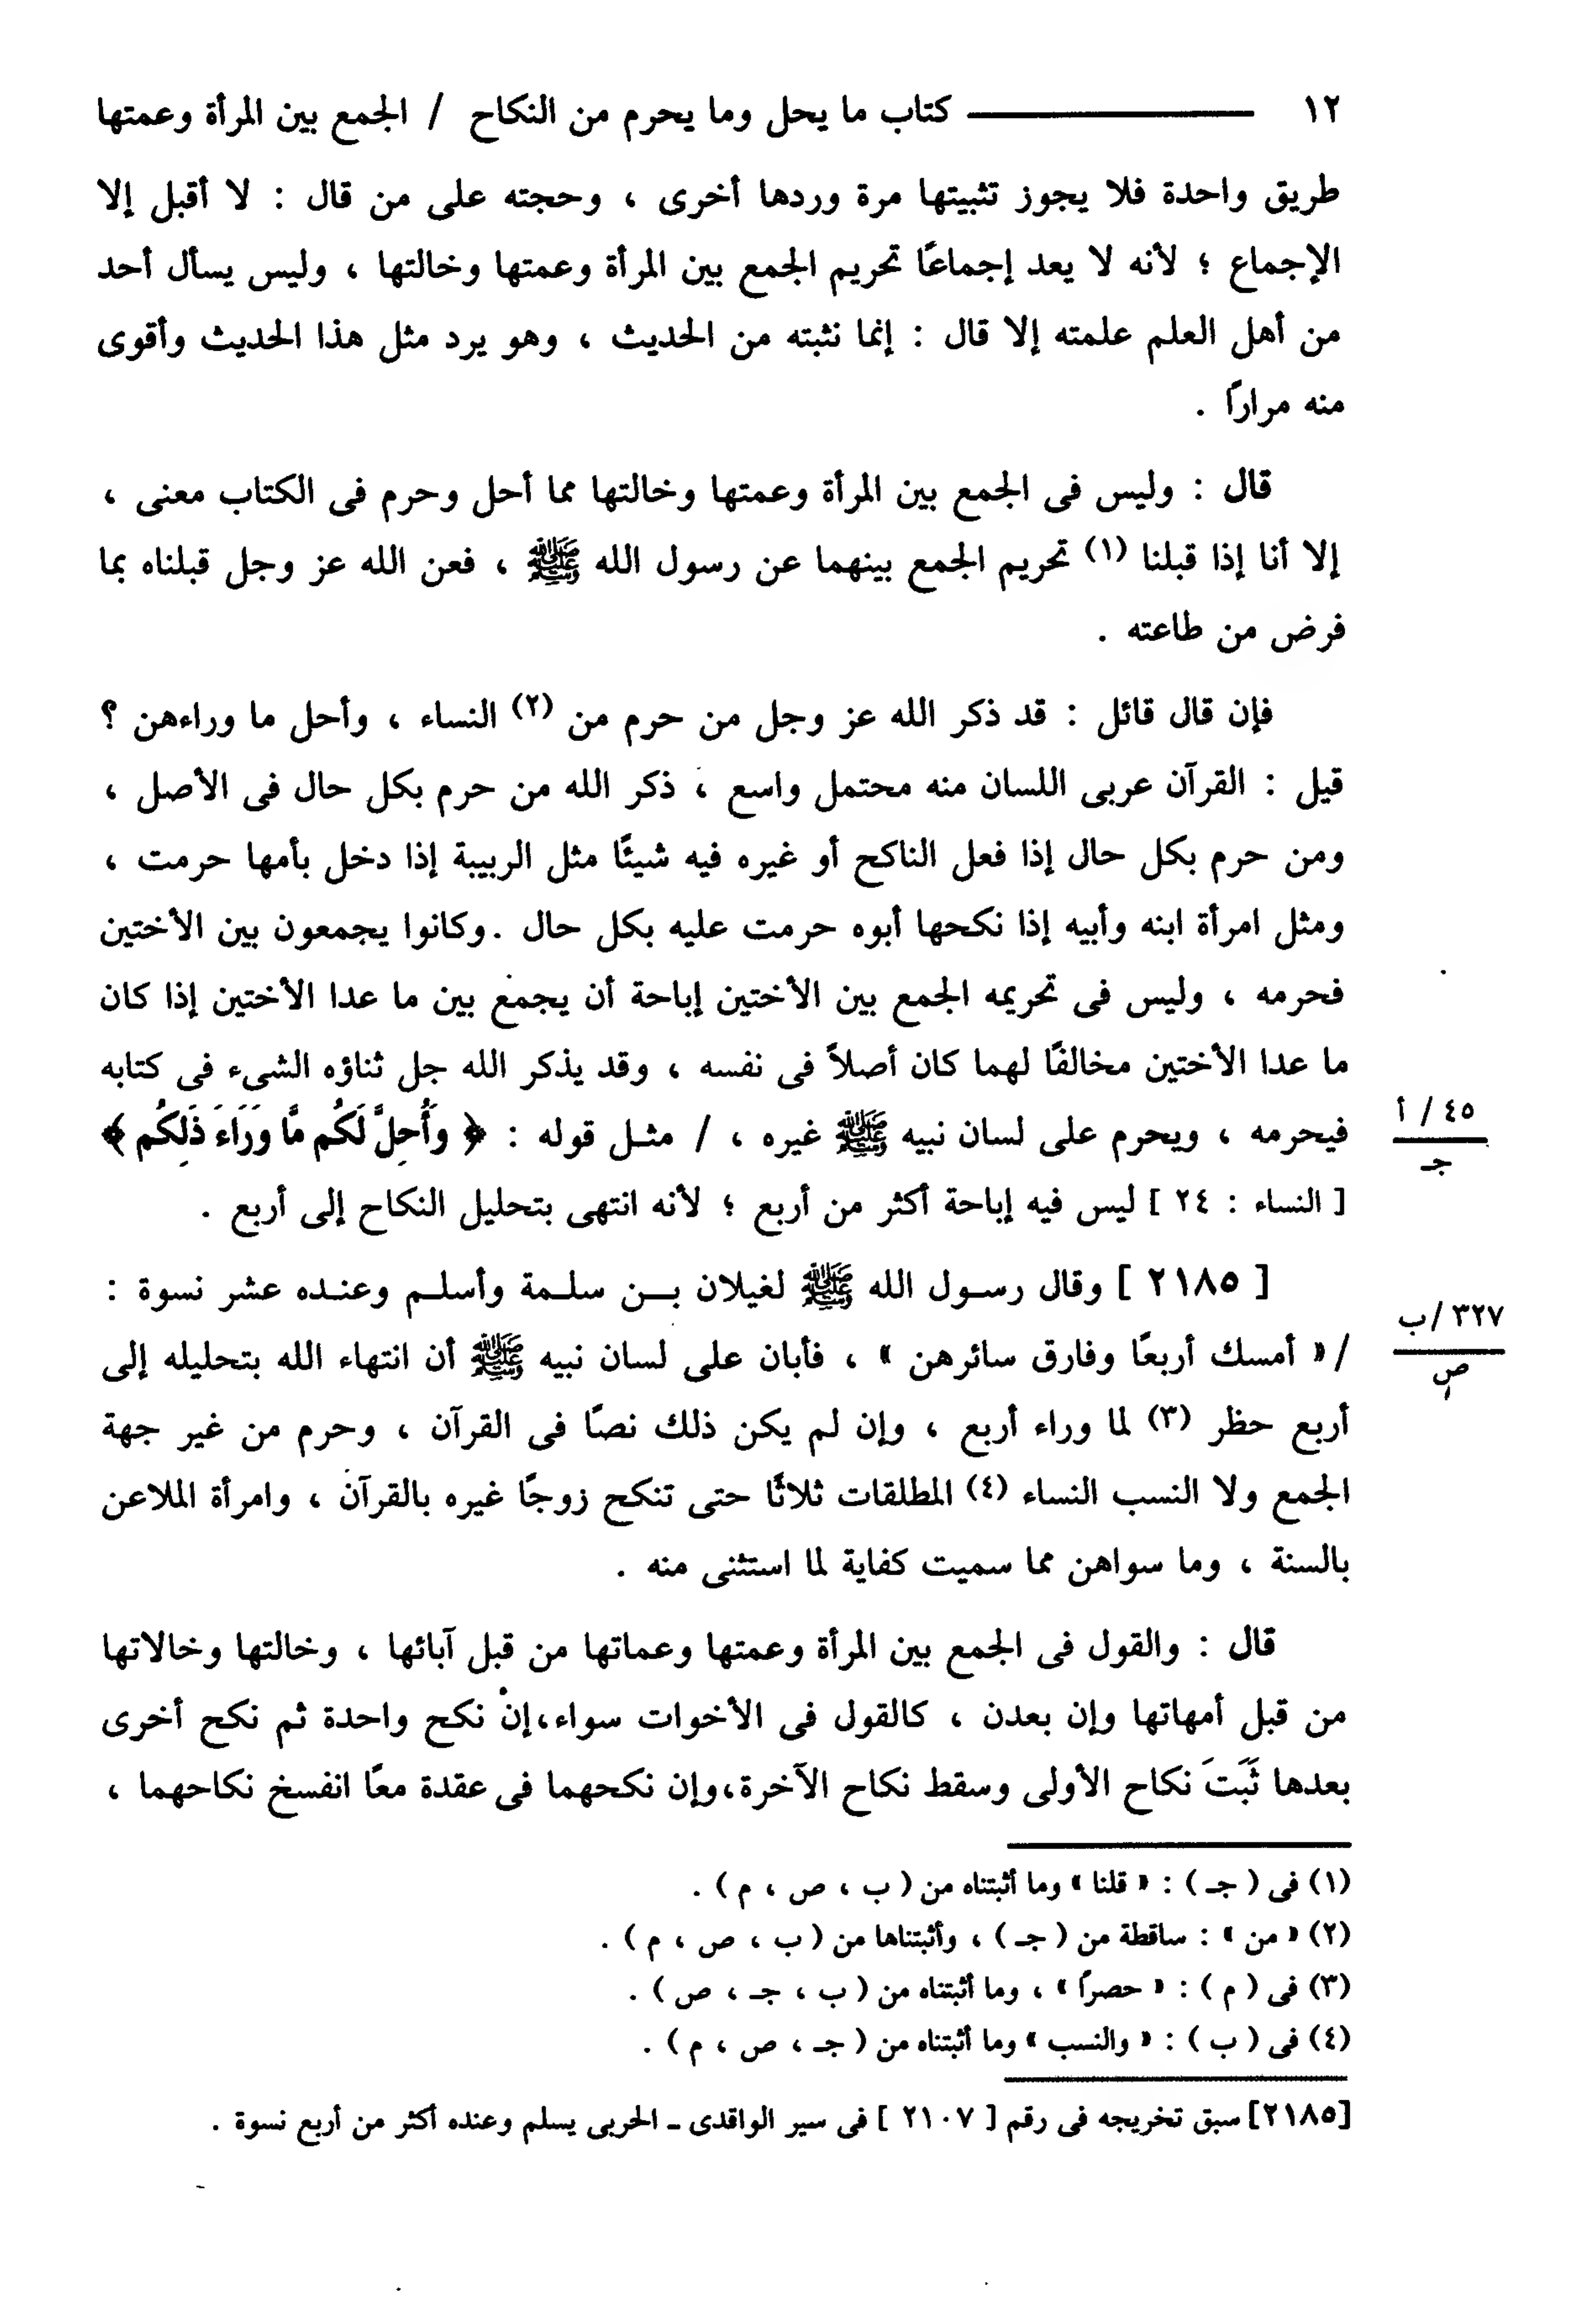 ١٢ ——— كتاب ما يحل وما يحرم من النكاح / الجمع بين المرأة وعمتها
طريق واحدة فلا يجوز تثبيتها مرة وردها أخرى ، وحجته على من قال : لا أقبل إلا
الإجماع ؛ لأنه لا يعد إجماعًا تحريم الجمع بين المرأة وعمتها وخالتها ، وليس يسأل أحد
من أهل العلم علمته إلا قال : إنما نثبته من الحديث ، وهو يرد مثل هذا الحديث وأقوى
منه مرارًا .
قال : وليس فى الجمع بين المرأة وعمتها وخالتها مما أحل وحرم فى الكتاب معنى ،
إلا أنا إذا قبلنا (١) تحريم الجمع بينهما عن رسول الله ﷺ ، فعن الله عز وجل قبلناه بما
فرض من طاعته .
فإن قال قائل : قد ذكر الله عز وجل من حرم من (٢) النساء ، وأحل ما وراءهن ؟
قيل : القرآن عربى اللسان منه محتمل واسع ، ذكر الله من حرم بكل حال فى الأصل ،
ومن حرم بكل حال إذا فعل الناكح أو غيره فيه شيئًا مثل الربيبة إذا دخل بأمها حرمت ،
ومثل امرأة ابنه وأبيه إذا نكحها أبوه حرمت عليه بكل حال . وكانوا يجمعون بين الأختين
فحرمه ، وليس فى تحريمه الجمع بين الأختين إباحة أن يجمع بين ما عدا الأختين إذا كان
ما عدا الأختين مخالفًا لهما كان أصلاً فى نفسه ، وقد يذكر الله جل ثناؤه الشىء فى كتابه
فيحرمه ، ويحرم على لسان نبيه ﷺ غيره ، / مثـل قوله : ﴿ وَأُحِلَّ لَكُم مَّا وَرَاءَ ذَلِكُم ﴾
٤٥ / أ
جـ
[ النساء : ٢٤ ] ليس فيه إباحة أكثر من أربع ؛ لأنه انتهى بتحليل النكاح إلى أربع .
[ ٢١٨٥ ] وقال رسـول الله ﷺ لغيلان بـــن سلـمة وأسلـم وعنـده عشر نسوة :
/ « أمسك أربعًا وفارق سائرهن » ، فأبان على لسان نبيه ﷺ أن انتهاء الله بتحليله إلى
٣٢٧ /ب
ص
أربع حظر (٣) لما وراء أربع ، وإن لم يكن ذلك نصًا فى القرآن ، وحرم من غير جهة
الجمع ولا النسب النساء (٤) المطلقات ثلاثًا حتى تنكح زوجًا غيره بالقرآن ، وامرأة الملاعن
بالسنة ، وما سواهن مما سميت كفاية لما استثنى منه .
قال : والقول فى الجمع بين المرأة وعمتها وعماتها من قبل آبائها ، وخالتها وخالاتها
من قبل أمهاتها وإن بعدن ، كالقول فى الأخوات سواء،إنْ نكح واحدة ثم نكح أخرى
بعدها ثَبَتَ نكاح الأولى وسقط نكاح الآخرة،وإن نكحهما فى عقدة معًا انفسخ نكاحهما ،
(١) فى ( جـ ) : « قلنا » وما أثبتناه من ( ب ، ص ، م ) .
(٢) « من » : ساقطة من ( جـ ) ، وأثبتناها من ( ب ، ص ، م ) .
(٣) فى ( م ) : « حصرًا » ، وما أثبتناه من ( ب ، جـ ، ص ) .
(٤) فى ( ب ) : « والنسب » وما أثبتناه من ( جـ ، ص ، م ) .
[٢١٨٥] سبق تخريجه فى رقم [ ٢١٠٧ ] فى سير الواقدى ـ الحربى يسلم وعنده أكثر من أربع نسوة .